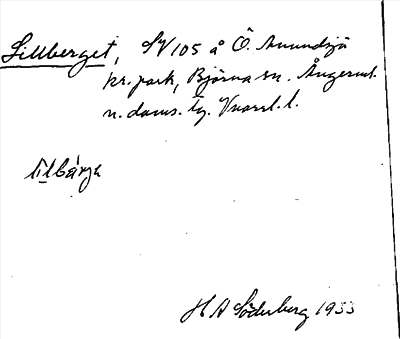 Sillberget, SV 105 å Ö. Anundsjö
kr. park, Björna sn. Ångerml.
n. doms. tg. Vnorrl. l.
sillbärje
H A Söderberg 1933